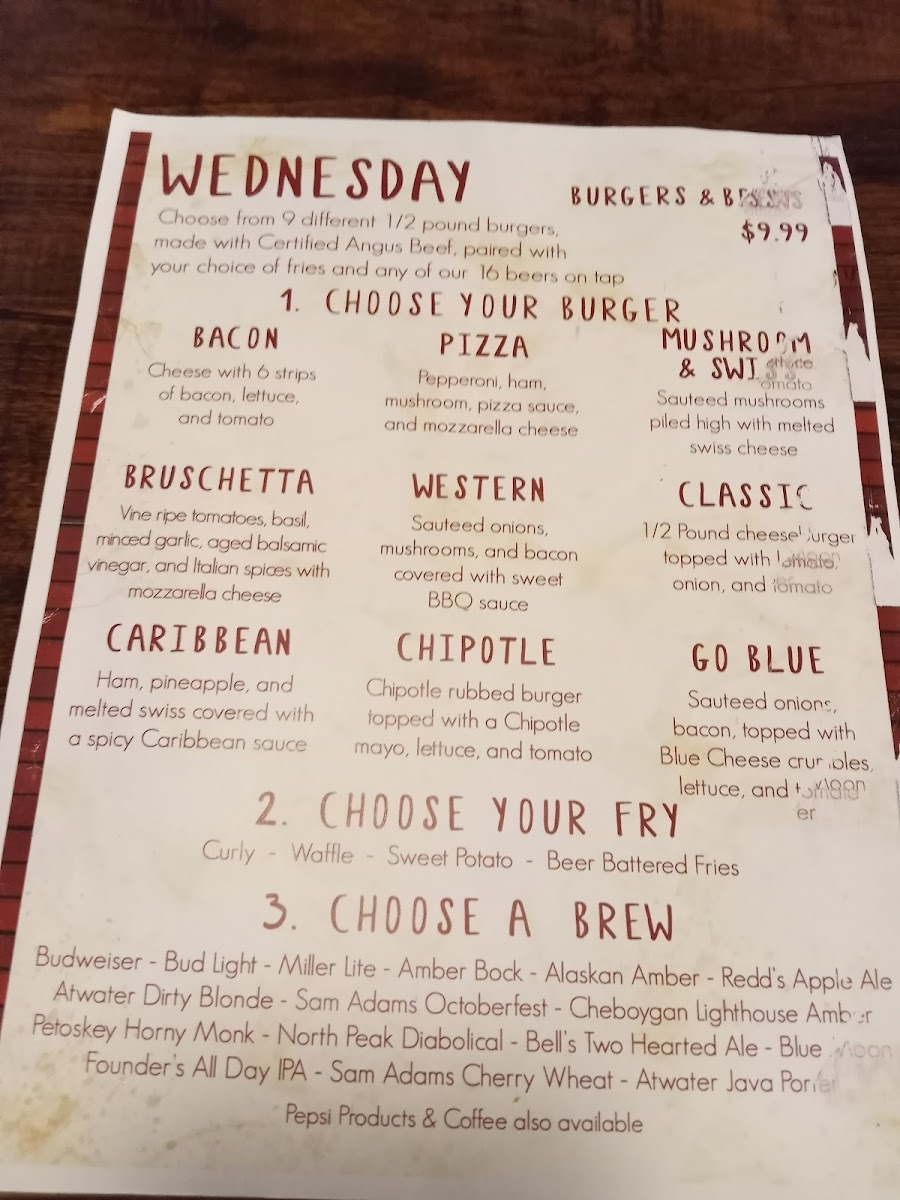 WEDNESDAY
BURGERS & 
$9.99
Choose from 9 different 1/2 pound burgers,
made with Certified Angus Beef, paired with
your choice of fries and any of our 16 beers on tap
1. CHOOSE YOUR BURGER
BACON
Cheese with 6 strips
of bacon, lettuce,
and tomato
PIZZA
Pepperoni, ham,
mushroom, pizza sauce,
and mozzarella cheese
MUSHROOM
& SWISS
Sauteed mushrooms
piled high with melted
swiss cheese
BRUSCHETTA
Vine ripe tomatoes, basil,
minced garlic, aged balsamic
vinegar, and Italian spices with
mozzarella cheese
WESTERN
Sauteed onions,
mushrooms, and bacon
covered with sweet
BBQ sauce
CLASSIC
1/2 Pound cheeseburger
topped with
onion, and tomato
CARIBBEAN
Ham, pineapple, and
melted swiss covered with
a spicy Caribbean sauce
CHIPOTLE
Chipotle rubbed burger
topped with a Chipotle
mayo, lettuce, and tomato
GO BLUE
Sauteed onions,
bacon, topped with
Blue Cheese crumbles,
lettuce, and tomato
2. CHOOSE YOUR FRY
Curly - Waffle - Sweet Potato - Beer Battered Fries
3. CHOOSE A BREW
Budweiser - Bud Light - Miller Lite - Amber Bock - Alaskan Amber - Redd's Apple Ale
Atwater Dirty Blonde - Sam Adams Octoberfest - Cheboygan Lighthouse Amber
Petoskey Horny Monk - North Peak Diabolical - Bell's Two Hearted Ale - Blue Moon
Founder's All Day IPA - Sam Adams Cherry Wheat - Atwater Java Porter
Pepsi Products & Coffee also available